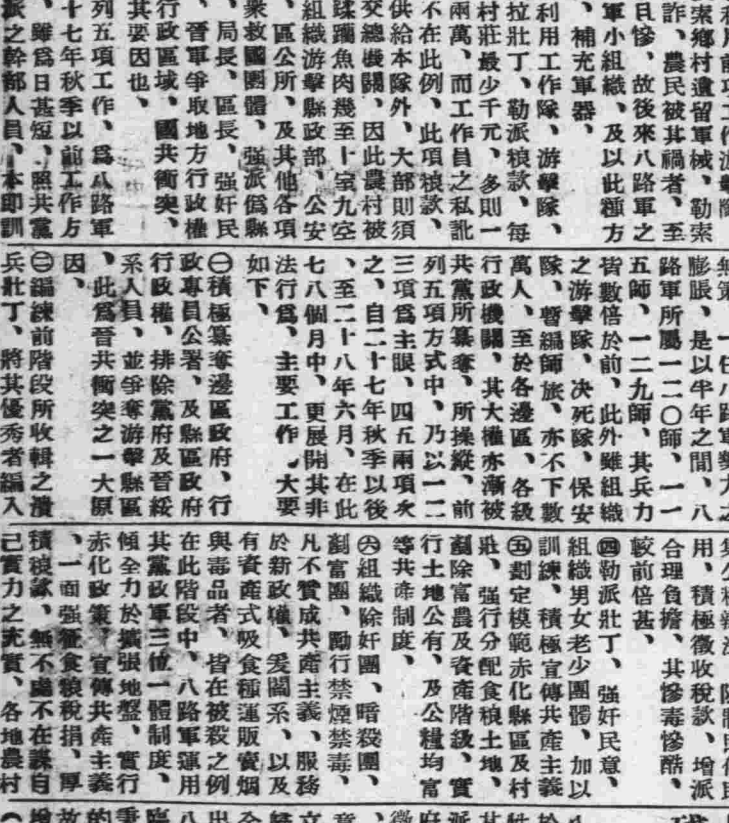 索鄉村遺留軍械、勒索
詐、農民被其禍者、至
且慘、故後來八路軍之
軍小組織、及以此種方
、補充軍器、
利用工作隊、游擊隊、
拉壯丁、勒派粮款、每
村莊最少千元、多則一
兩萬、而工作員之私訛
不在此例、此項粮款、
供給本隊外、大部則須
交總機關、因此農村被
蹂躪魚肉幾至十室九空
組織游擊縣政部、公安
、區公所、及其他各項
衆救國團體、强派僞縣
、局長、區長、强奸民
、晉軍爭取地方行政權
行政區域、國共衝突、
其要因也、
列五項工作、爲八路軍
十七年秋季以前工作方
、雖爲日甚短、照共黨
派之幹部人員、本即訓
膨脹、是以半年之間、八
路軍所屬一二〇師、一一
五師、一二九師、其兵力
皆數倍於前、此外雖組織
之游擊隊、决死隊、保安
隊、暫編師旅、亦不下數
萬人、至於各邊區、各級
行政機關、其大權亦漸被
共黨所纂奪、所操縱、前
列五項方式中、乃以一二
三項爲主眼、四五兩項次
之、自二十七年秋季以後
、至二十八年六月、在此
七八個月中、更展開其非
法行爲、主要工作、大要
如下、
㊀積極纂奪邊區政府、行
政專員公署、及縣區政府
行政權、排除黨府及晉綏
系人員、並爭奪游擊縣區
、此爲晉共衝突之一大原
因、
㊁編練前階段所收輯之潰
兵壯丁、將其優秀者編入
用、積極徵收税款、增派
合理負擔、其慘毒慘酷、
較前倍甚、
㊃勒派壯丁、强奸民意、
組織男女老少團體、加以
訓練、積極宣傳共產主義
㊄劃定模範赤化縣區及村
壯、强行分配食粮土地、
剷除富農及資產階級、實
行土地公有、及公糧均富
等共產制度、
㊅組織除奸團、暗殺團、
剷富團、勵行禁煙禁毒、
凡不賛成共產主義、服務
於新政權、爰闔系、以及
有資產式吸食種運販賣烟
與毒品者、皆在被殺之例
在此階段中、八路軍運用
其黨政軍三位一體制度、
傾全力於擴張地盤、實行
赤化政策、宣傳共產主義
、一面强征食粮税捐、厚
積粮款、無不處不在謀自
己實力之充實、各地農村